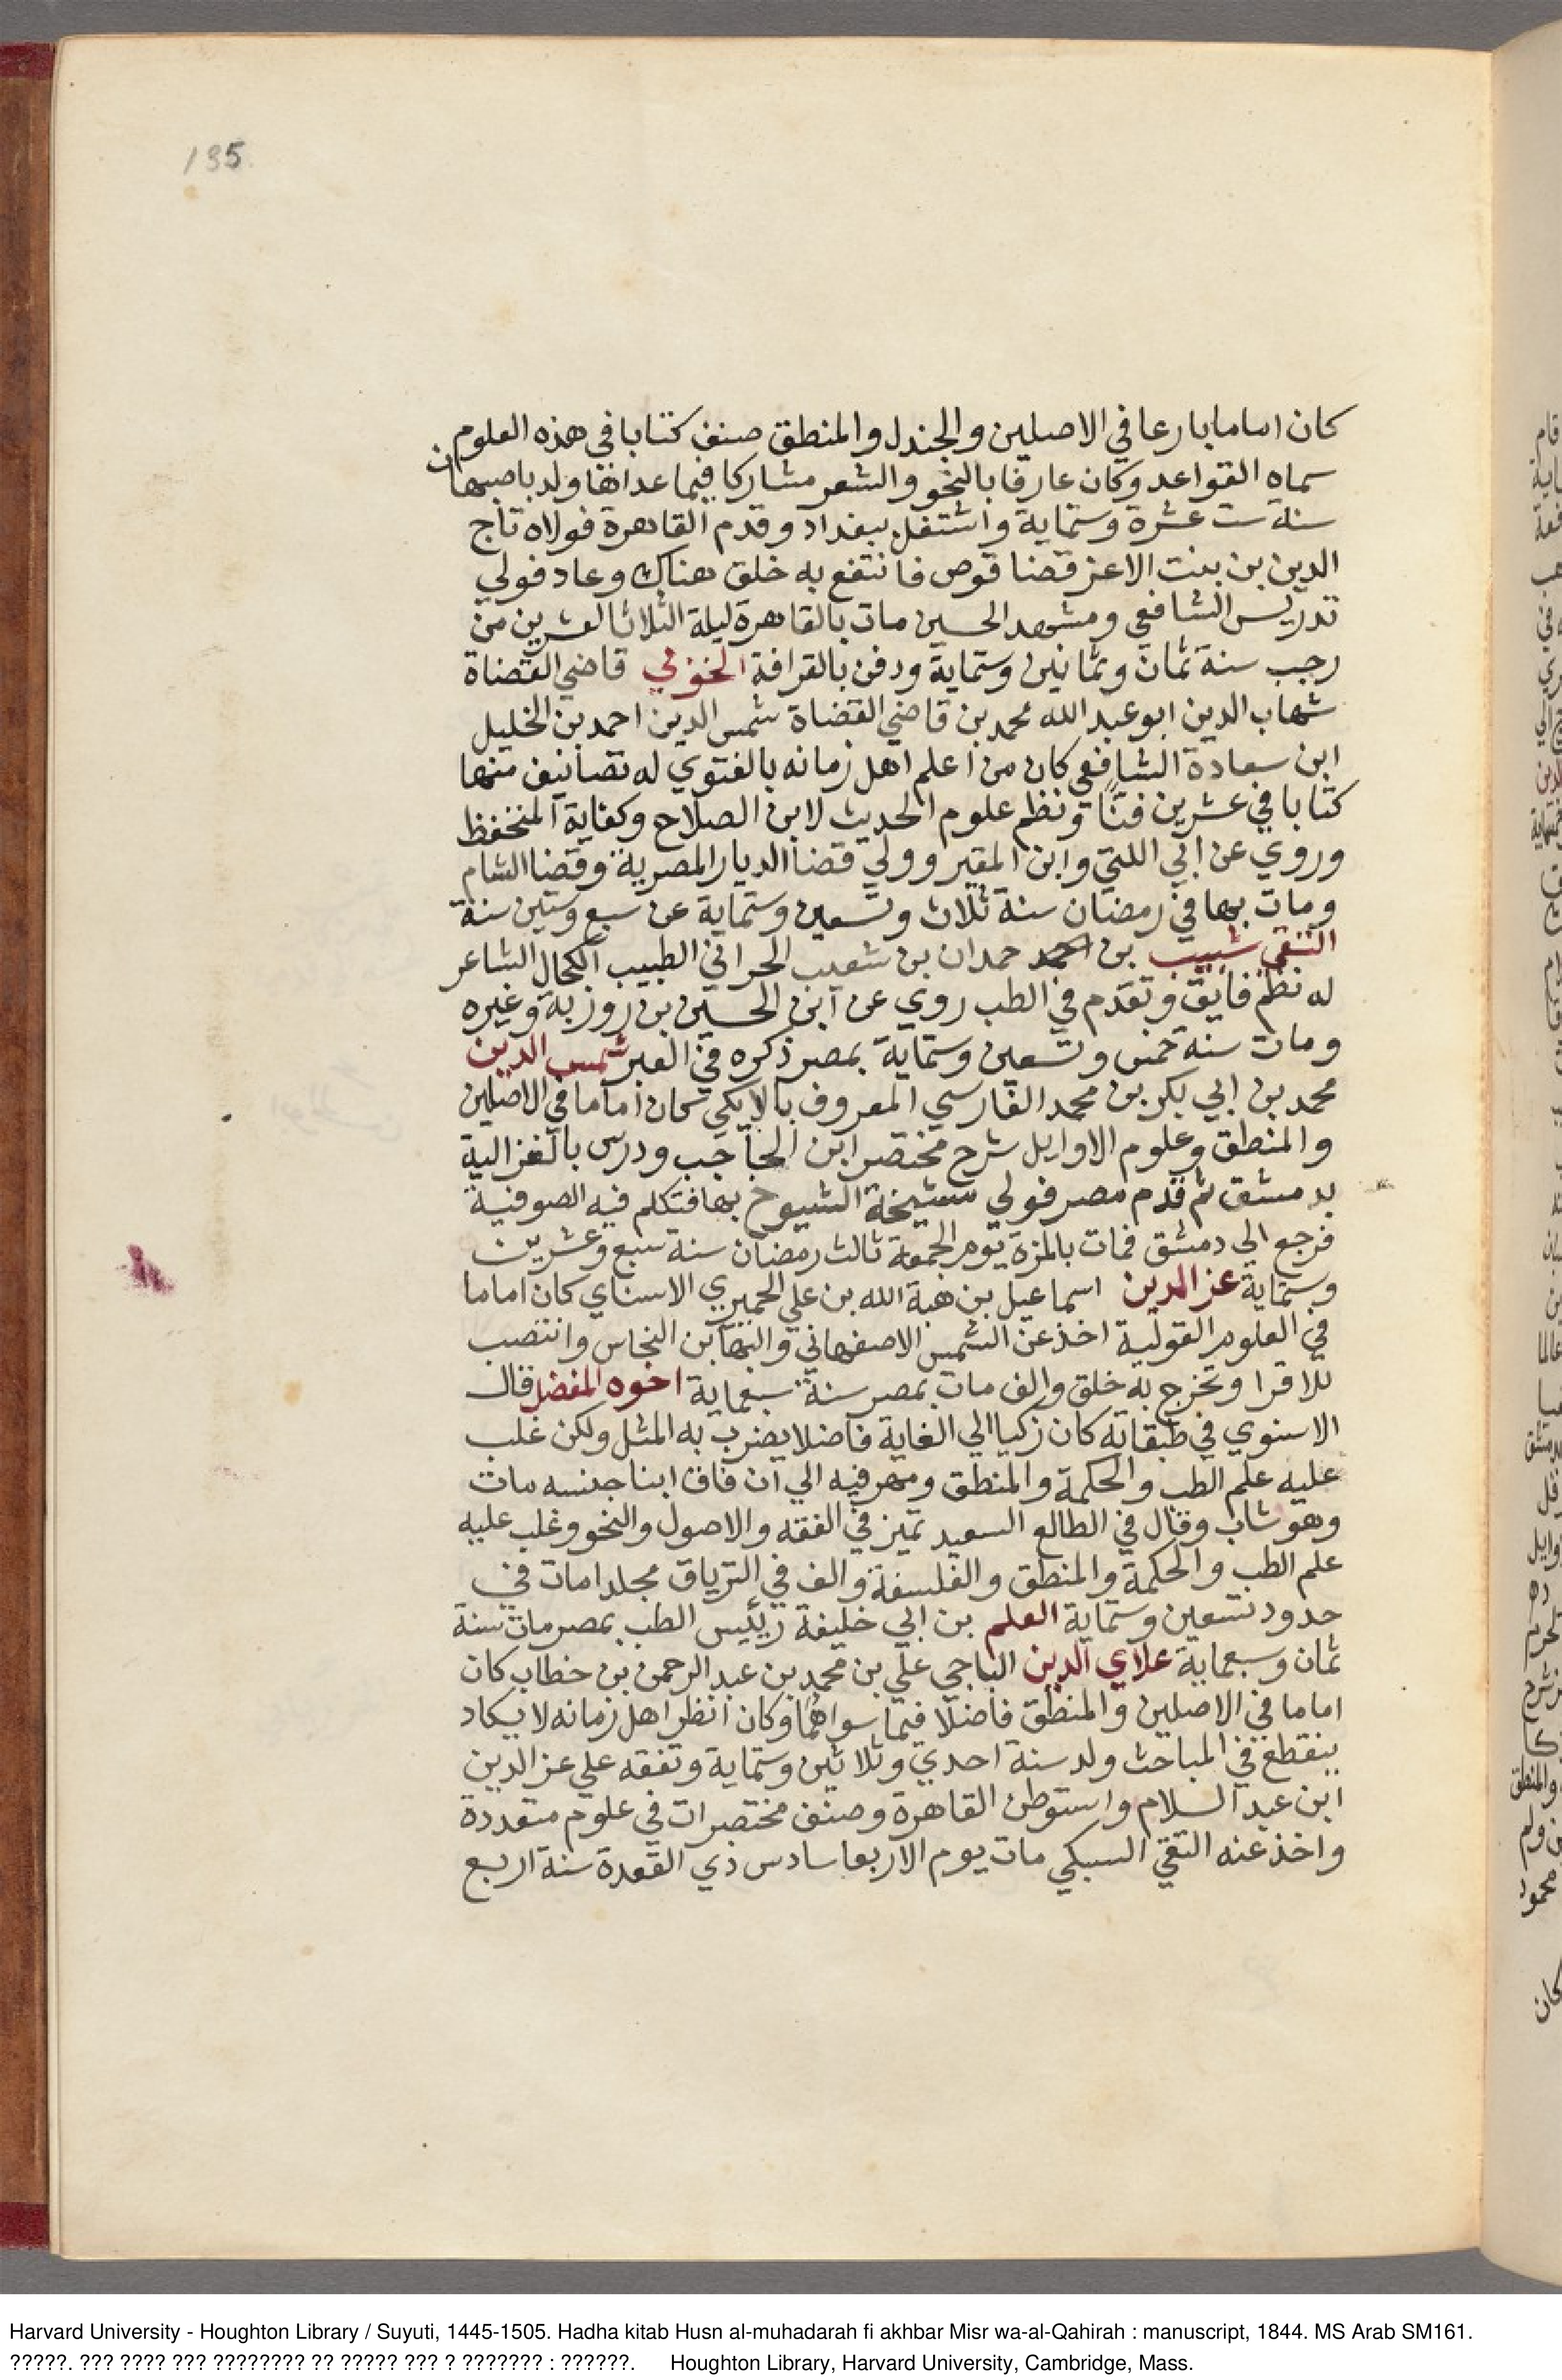 135
كان اماما بارعا في الاصلين والجندل والمنطق صنف كتابا في هذه العلوم
سماه القواعد وكان عارفا بالنحو والشعر مشاركا فيما عداها ولد باصبهان
سنة ست عشرة وستماية واشتغل ببغداد وقدم القاهرة فولاه تاج
الدين بن بنت الاعز قضا قوص فانتفع به خلق هناك وعاد فولي
تدريس الشافعي ومشهد الحسين مات بالقاهرة ليلة الثلاثا العشرين من
رجب سنة ثمان وثمانين وستماية ودفن بالقرافة الخوني قاضي القضاة
شهاب الدين ابو عبد الله محمد بن قاضي القضاة شمس الدين احمد بن الخليل
ابن سعادة الشافعي كان من اعلم اهل زمانه بالفتوي له تصانيف منها
كتابا في عشرين فنًا ونظم علوم الحديث لابن الصلاح وكفاية المتحفظ
وروي عن ابي اللتي وابن المقير وولي قضا الديار المصرية وقضا الشام
ومات بها في رمضان سنة ثلاث وتسعين وستماية عن سبع وستين سنة
التقي شبيب بن احمد حمدان بن شعيب الحراني الطبيب الكحال الشاعر
له نظم فايق وتقدم في الطب روي عن ابن الحسين بن روزبة وغيره
ومات سنة خمس وتسعين وستماية بمصر ذكره في العبر شمس الدين
محمد بن ابي بكر بن محمد الفارسي المعروف بالايكي كان اماما في الاصلين
والمنطق وعلوم الاوايل شرح مختصر ابن الحاجب ودرس بالغزالية
بدمشق ثم قدم مصر فولي مشيخة الشيوخ بها فتكلم فيه الصوفية
فرجع الي دمشق فمات بالمزة يوم الجمعة ثالث رمضان سنة سبع وعشرين
وستماية عز الدين اسماعيل بن هبة الله بن علي الحميري الاسناي كان اماما
في العلوم القولية اخذ عن الشمس الاصفهاني والبها بن النحاس وانتصب
للاقرا وتخرج به خلق والف مات بمصر سنة سبعماية اخوه المفضل قال
الاسنوي في طبقاته كان زكيا الي الغاية فاضلا يضرب به المثل ولكن غلب
عليه علم الطب والحكمة والمنطق ومهر فيه الي ان فاق ابنا جنسه مات
وهو شاب وقال في الطالع السعيد تميز في الفقه والاصول والنحو وغلب عليه
علم الطب والحكمة والمنطق والفلسفة والف في الترياق مجلدا مات في
حدود تسعين وستماية العلم بن ابي خليفة رييس الطب بمصر مات سنة
ثمان وسبعماية علاي الدين الباجي علي بن محمد بن عبد الرحمن بن خطاب كان
اماما في الاصلين والمنطق فاضلا فيما سواهما وكان انظر اهل زمانه لا يكاد
ينقطع في المباحث ولد سنة احدي وثلاثين وستماية وتفقه علي عز الدين
ابن عبد السلام واستوطن القاهرة وصنف مختصرات في علوم متعددة
واخذ عنه التقي السبكي مات يوم الاربعا سادس ذي القعدة سنة اربع
Harvard University - Houghton Library / Suyuti, 1445-1505. Hadha kitab Husn al-muhadarah fi akhbar Misr wa-al-Qahirah : manuscript, 1844. MS Arab SM161.
?????. ??? ???? ??? ???????? ?? ????? ??? ? ??????? : ??????. Houghton Library, Harvard University, Cambridge, Mass.